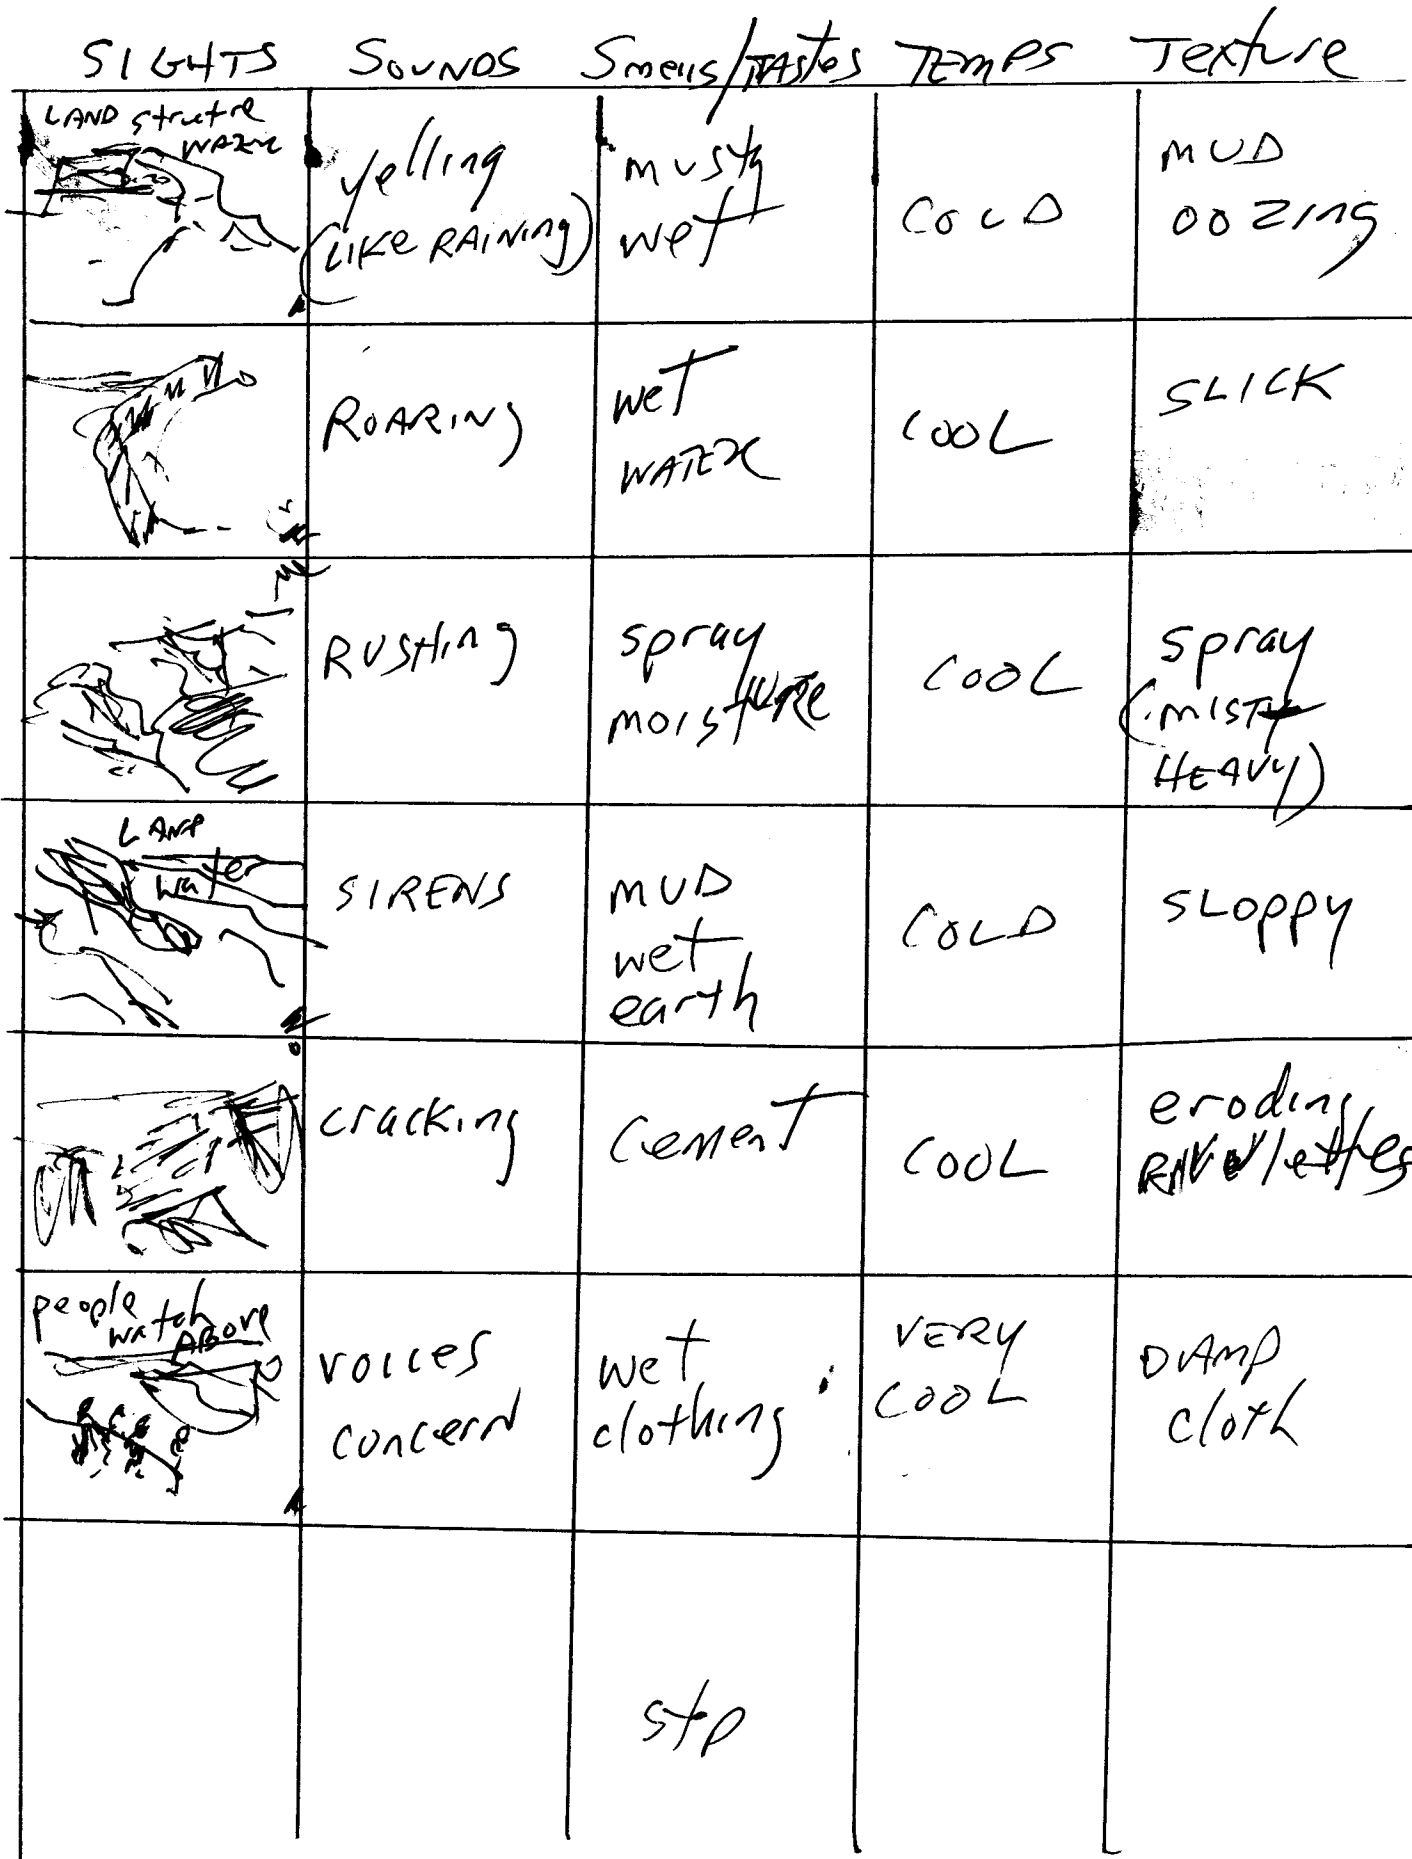 SIGHTS SOUNDS Smells/TASTES TEMPS Texture
LAND structre
WATER
yelling
(LIKE RAINING)
musty
wet
COLD
MUD
OOZING
ROARING
wet
WATER
COOL
SLICK
RUSHING
spray
moisture
COOL
spray
(MISTY
HEAVY)
LAND
water
SIRENS
MUD
wet
earth
COLD
SLOPPY
cracking
Cement
COOL
eroding
people
watch
ABOVE
VOICES
concern
wet
clothing
VERY
COOL
DAMP
cloth
stp